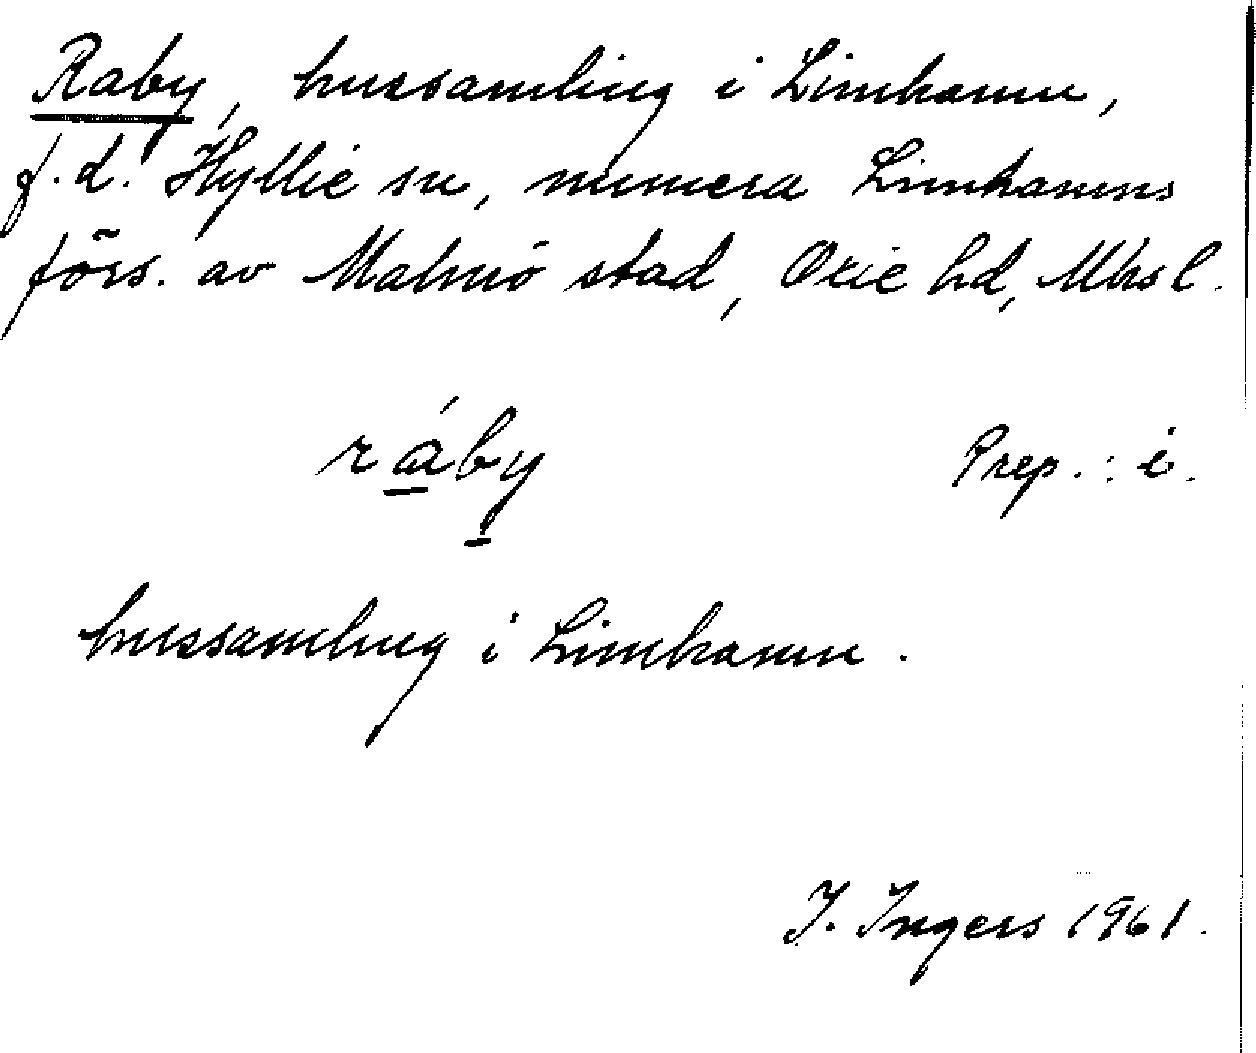 Raby, hussamling i Limhamn,
f.d. Hyllie sn, numera Limhamns
förs. av Malmö stad, Oxie hd, Mhsl.
ráby Prep.: i.
hussamling i Limhamn.
I. Ingers 1961.